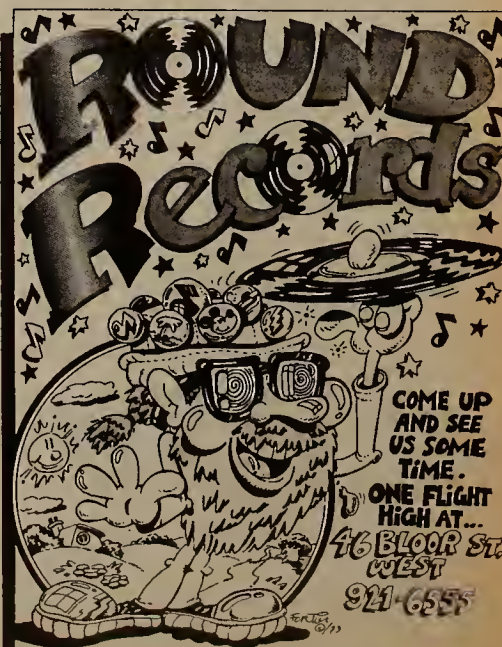 ROUND
Records
COME UP
AND SEE
US SOME
TIME.
ONE FLIGHT
HIGH AT...
46 BLOOR ST.
WEST
921-6555